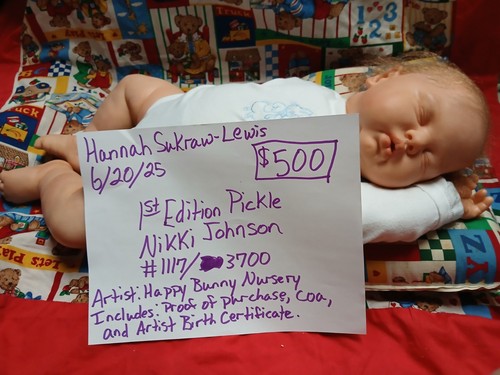 Truck
1 2 3
Truck
Hannah Sukraw-Lewis
6/20/25
$500
1st Edition Pickle
Nikki Johnson
#1117/ 3700
Artist: Happy Bunny Nursery
Includes: Proof of purchase, Coa,
and Artist Birth Certificate.
Let's Play
XYZ